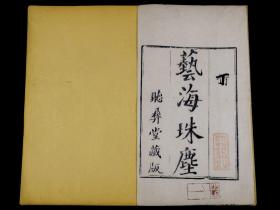 丁
藝海珠塵
聽彝堂藏版